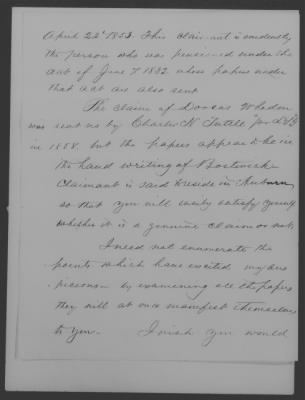 April 22d 1853. This claimant is evidently
the person who was pensioned under the
act of June 7 1832 whose papers under
that act are also sent
The claim of Dorcas Whedon
was sent us by Charles N. Tuttle
in 1858. but the papers appear to be in
the hand writing of Bostwick
Claimant is said to reside in Auburn
so that you will easily satisfy yourself
whether it is a genuine claim or not.
I need not enumerate the
points which have excited my sus
picions - by examining all the papers
they will at once manifest themselves
to you. I wish you would